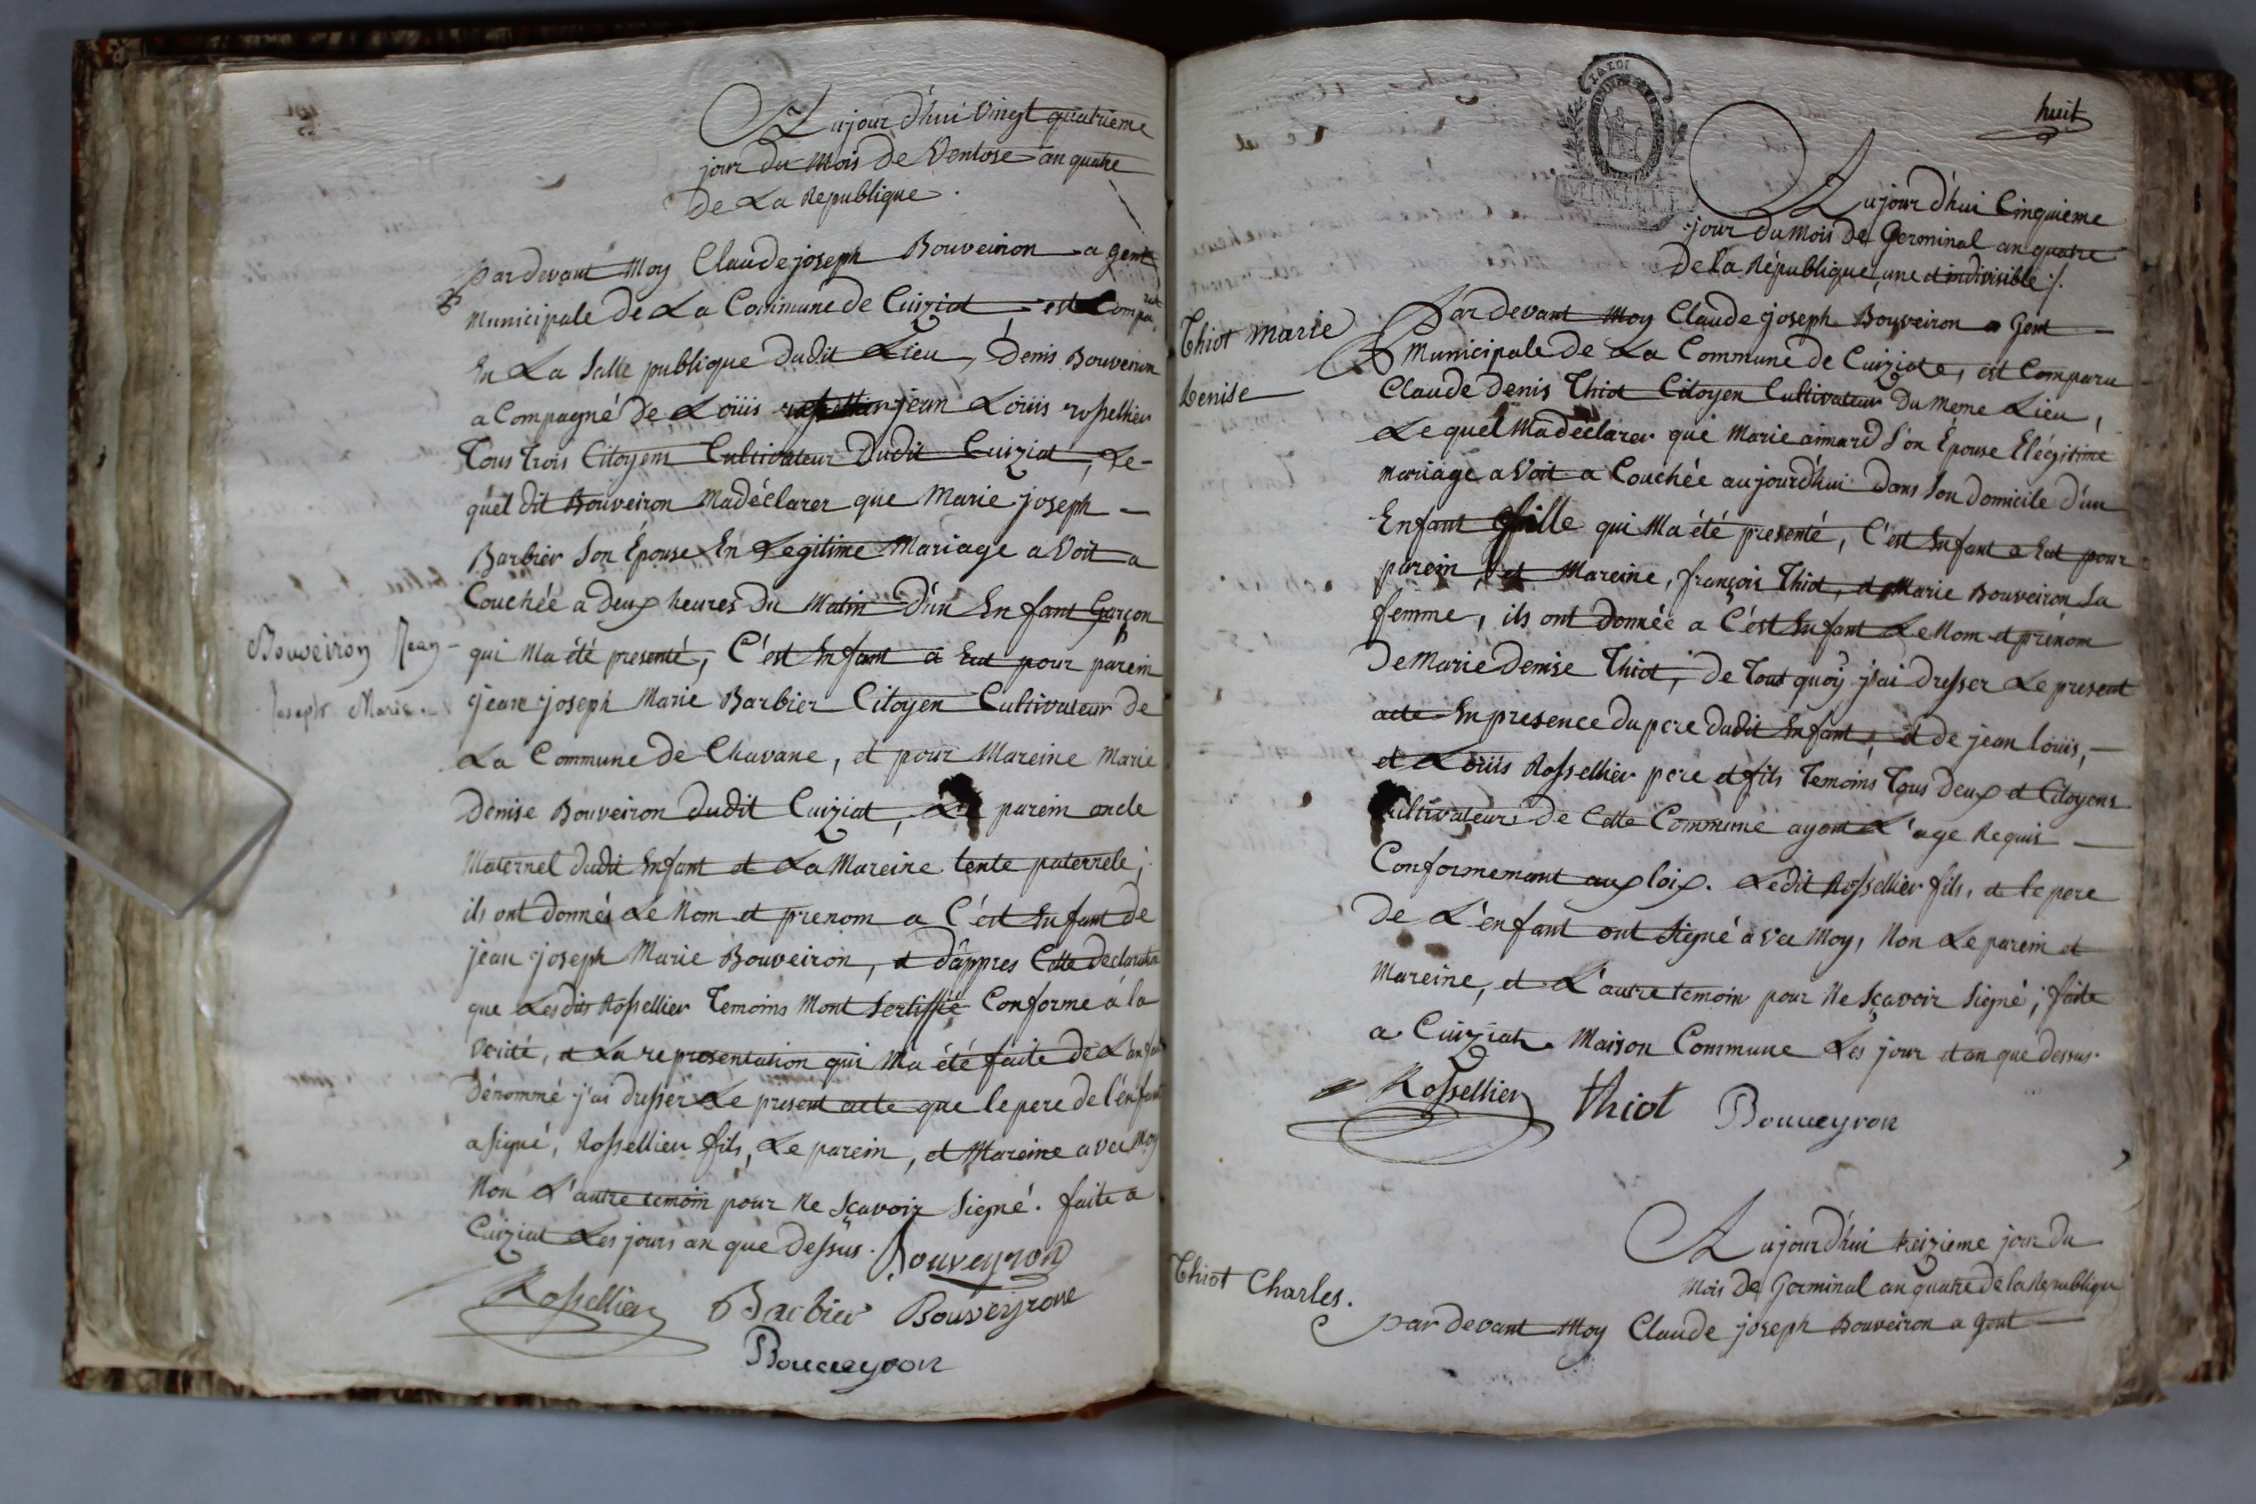 Aujour d'hui vingt quatrieme
jour du mois de Ventose an quatre
de La Republique.
pardevant Moy Claude joseph Bouveiron agent
municipale de La Commune de Cuiziat, est Comparut
En La Salle publique dudit Lieu, Denis Bouveiron
a Compagné de Loüis jean Loüis rossellier
Tous Trois Citoyens Cultivateur Dudit Cuiziat, Le-
quel dit Bouveiron Madéclarer que Marie joseph —
Barbier Son Épouse En Legitime Mariage a Voit a
Couchée a deux heures du Matin d'un Enfant Garçon
Bouveiron Jean
Joseph Marie.
qui Ma été presenté, C'est Enfant a Eut pour parein
jean joseph Marie Barbier Citoyen Cultivateur de
La Commune de Chavane, et pour Mareine Marie
Denise Bouveiron dudit Cuiziat, Le parein oncle
Maternel dudit Enfant et La Mareine tente paternele;
ils ont donnés Le Nom et prenom a C'est Enfant de
jean joseph Marie Bouveiron, et d'appres Cette declaration
que Lesdits Rossellier Temoins Mont Sertiffié Conforme à la
verité, et La representation qui Ma été faite de L'enfant
Dénommé j'ai dresser Le present acte que le pere de l'enfant
a signé, Rossellier fils, Le parein, et Mareine avec Moy
Non L'autre temoin pour Ne Sçavoir Signé. faite a
Cuiziat Les jours an que dessus. Bouveyron
Rossellier Barbier Bouveyrone
Bouveyron
huit
Aujour d'hui Cinquieme
jour du Mois de Germinal an quatre
de la République, une et indivisible /.
Thiot Marie
Denise
Par devant Moy Claude joseph Bouveiron a Gent —
Municipale de La Commune de Cuiziate, est Comparu
Claude Denis Thiot Citoyen Cultivateur Du Meme Lieu,
Le quel Madéclarer que Marie aimard Son Épouse Elégitime
mariage a Voit a Couchée aujourd'hui Dans Son Domicile d'un
Enfant fille qui Ma été presenté, C'est Enfant a Eut pour
parein, et Mareine, françois Thiot, et Marie Bouveiron Sa
femme, ils ont donnée a C'est Enfant Le Nom et prénom
De Marie Denise Thiot, De Tout quoÿ j'ai dresser Le present
acte En presence du pere dudit Enfant, et de jean loüis, —
et Loüis Rossellier pere et fils Temoins Tous deux et Citoyens
Cultivateurs de Cette Commune ayant L'age Requis —
Conformement aux loix. Ledit Rossellier fils, et le pere
De L'enfant ont Signé a Vec Moy, Non Le parein et
Mareine, et L'autre temoin pour Ne Sçavoir Signé; faite
a Cuiziat Maison Commune Les jour et an que dessus.
Rossellier Thiot Bouveyron
Aujourd'hui treizieme jour du
Mois de Germinal an quatre de la Republique
Thiot Charles.
par devant Moy Claude joseph Bouveiron a Gent —